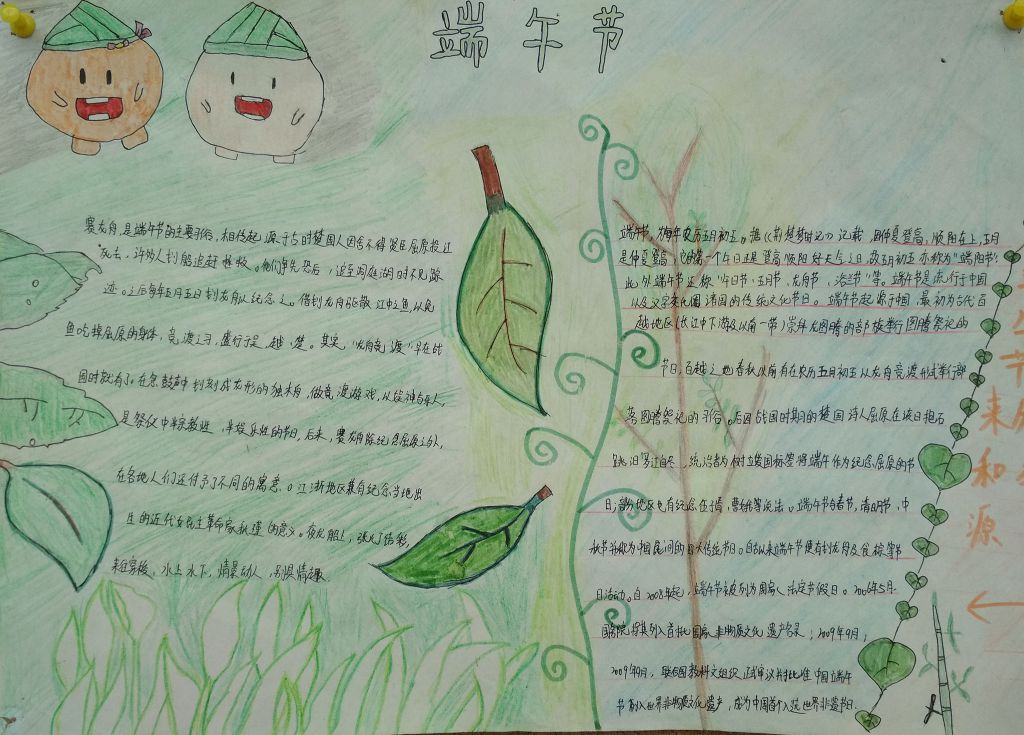 端午节
赛龙舟,是端午节的主要习俗,相传起源于古时楚国人因舍不得贤臣屈原投江
死去,许多人划船追赶拯救。他们争先恐后,追至洞庭湖时不见踪
迹。之后每年五月五日划龙舟以纪念之。借划龙舟驱散江中之鱼,以免
鱼吃掉屈原的身体,竞渡之习,盛行于吴、越、楚。其实,"龙舟竞渡"早在战
国时就有了。在急鼓声中划刻成龙形的独木舟,做竞渡游戏,以娱神与乐人,
是祭仪中半宗教性、半娱乐性的节目,后来,赛龙舟除纪念屈原之外,
在各地人们还付予了不同的寓意。江浙地区兼有纪念当地出
生的近代女民主革命家秋瑾的意义。夜龙船上,张灯结彩,
来往穿梭,水上水下,情景动人,别具情趣。
端午节,为每年农历五月初五。据《荆楚岁时记》记载,因仲夏登高,顺阳在上,五月
是仲夏,它的第一个午日正是登高顺阳好天气之日,故五月初五亦称为"端阳节"
此外端午节还称"午日节、五月节、龙舟节、浴兰节"等。端午节是流行于中国
以及汉字文化圈诸国的传统文化节日。端午节起源于中国,最初为古代百
越地区(长江中下游及以南一带)崇拜龙图腾的部族举行图腾祭祀的
节日,百越之地春秋以前有在农历五月初五以龙舟竞渡形式举行部
落图腾祭祀的习俗。后因战国时期的楚国诗人屈原在该日抱石
跳汨罗江自尽,统治者为树立爱国标签将端午作为纪念屈原的节
日;部分地区也有纪念伍子胥、曹娥等说法。端午节与春节、清明节、中
秋节并称为中国民间的四大传统节日。自古以来端午节便有划龙舟及食粽等节
日活动。自2008年起,端午节被列为国家法定节假日。2006年5月,
国务院将其列入首批国家非物质文化遗产名录;2009年9月,
2009年9月,联合国教科文组织正式审议并批准中国端午
节列入世界非物质文化遗产,成为中国首个入选世界非遗节日。
节
来
和
源